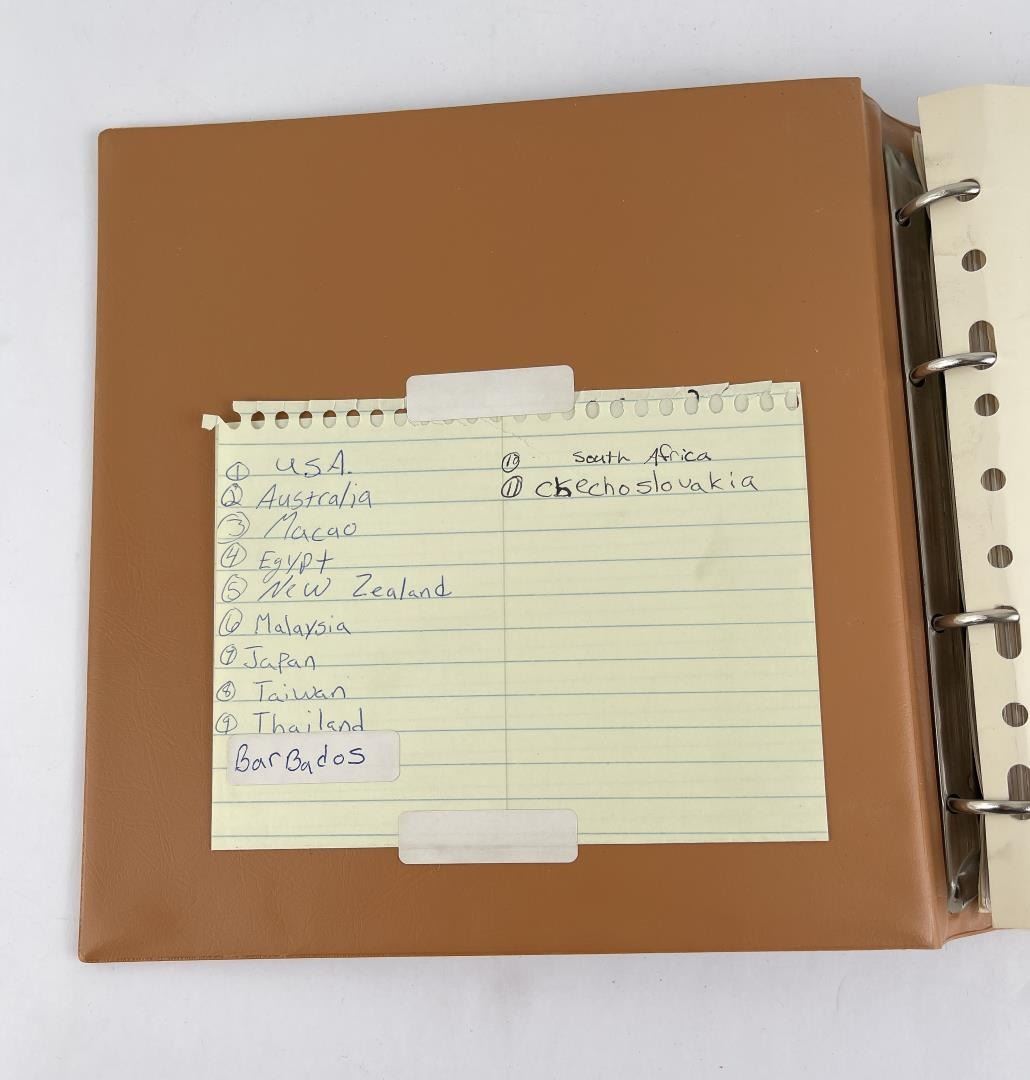 ① USA.
② Australia
③ Macao
④ Egypt
⑤ New Zealand
⑥ Malaysia
⑦ Japan
⑧ Taiwan
⑨ Thailand
BarBados
⑩ South Africa
⑪ Ckechoslovakia